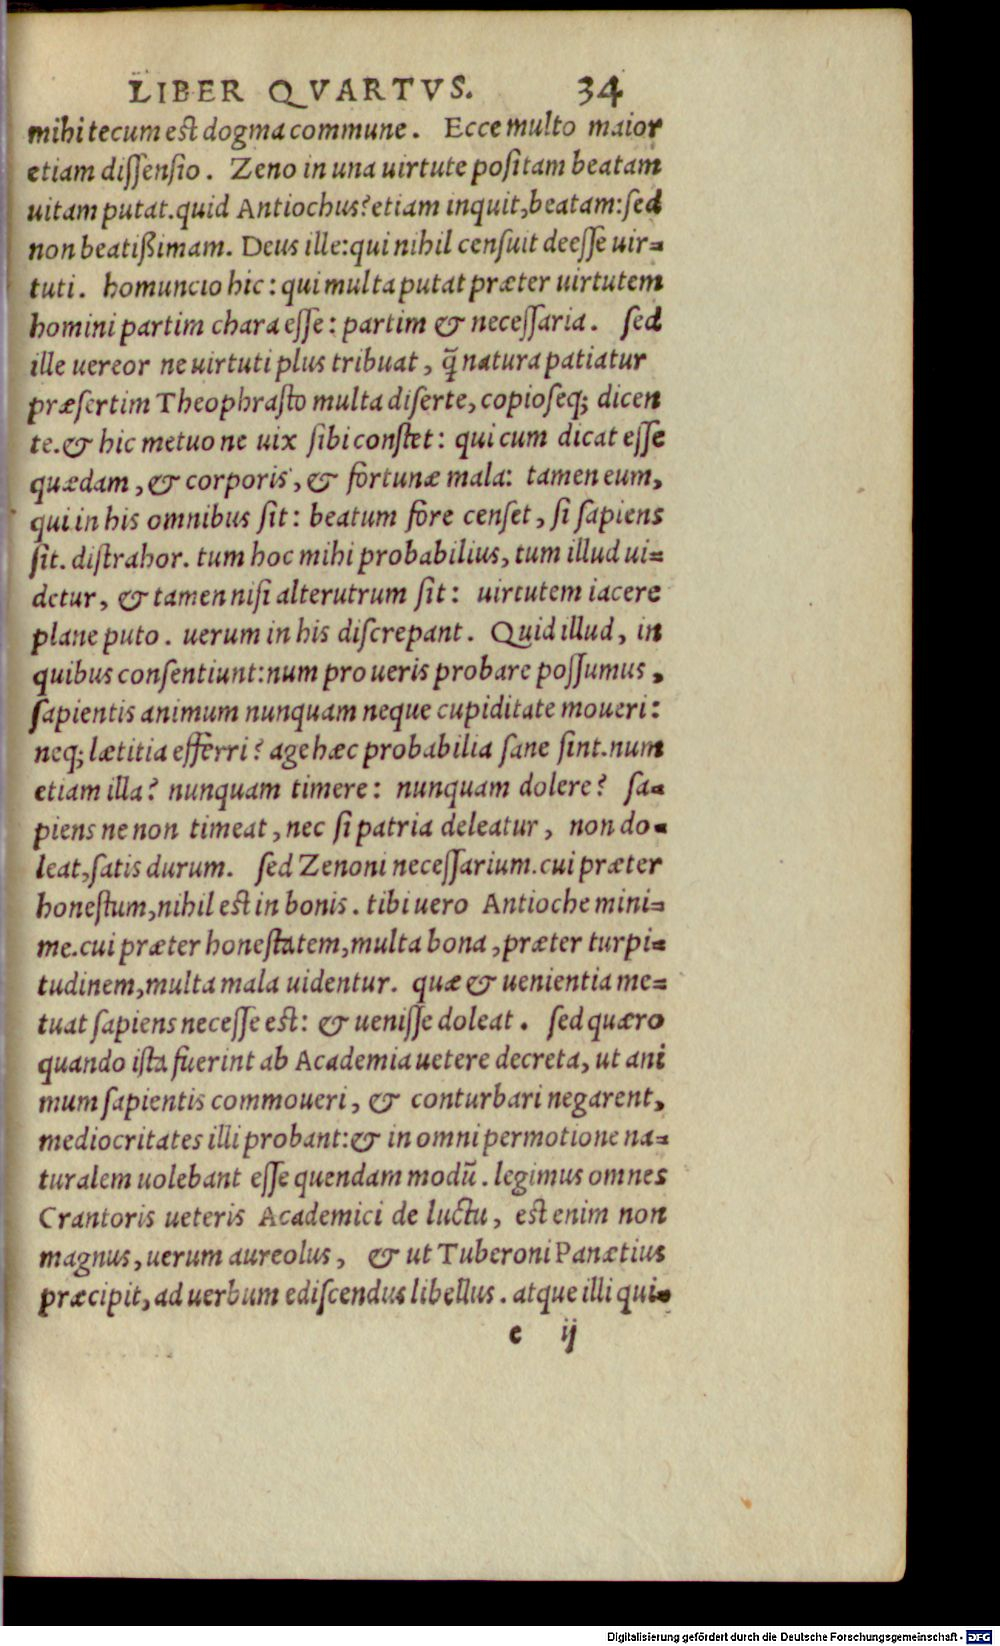 LIBER QVARTVS. 34
mihi tecum est dogma commune. Ecce multo maior
etiam dissensio. Zeno in una uirtute positam beatam
uitam putat. quid Antiochus? etiam inquit, beatam: sed
non beatißimam. Deus ille: qui nihil censuit deesse uir=
tuti. homuncio hic: qui multa putat præter uirtutem
homini partim chara esse: partim & necessaria. sed
ille uereor ne uirtuti plus tribuat, q̃ natura patiatur
præsertim Theophrasto multa diserte, copioseq; dicen
te. & hic metuo ne uix sibi constet: qui cum dicat esse
quædam, & corporis, & fortunæ mala: tamen eum,
qui in his omnibus sit: beatum fore censet, si sapiens
sit. distrahor. tum hoc mihi probabilius, tum illud ui=
detur, & tamen nisi alterutrum sit: uirtutem iacere
plane puto. uerum in his discrepant. Quid illud, in
quibus consentiunt: num pro ueris probare possumus,
sapientis animum nunquam neque cupiditate moueri:
neq; lætitia efferri? age hæc probabilia sane sint. num
etiam illa? nunquam timere: nunquam dolere? sa=
piens ne non timeat, nec si patria deleatur, non do=
leat, satis durum. sed Zenoni necessarium. cui præter
honestum, nihil est in bonis. tibi uero Antioche mini=
me. cui præter honestatem, multa bona, præter turpi=
tudinem, multa mala uidentur. quæ & uenientia me=
tuat sapiens necesse est: & uenisse doleat. sed quæro
quando ista fuerint ab Academia uetere decreta, ut ani
mum sapientis commoueri, & conturbari negarent,
mediocritates illi probant: & in omni permotione na=
turalem uolebant esse quendam modũ. legimus omnes
Crantoris ueteris Academici de luctu, est enim non
magnus, uerum aureolus, & ut Tuberoni Panætius
præcipit, ad uerbum ediscendus libellus. atque illi qui=
e ij
Digitalisierung gefördert durch die Deutsche Forschungsgemeinschaft - DFG